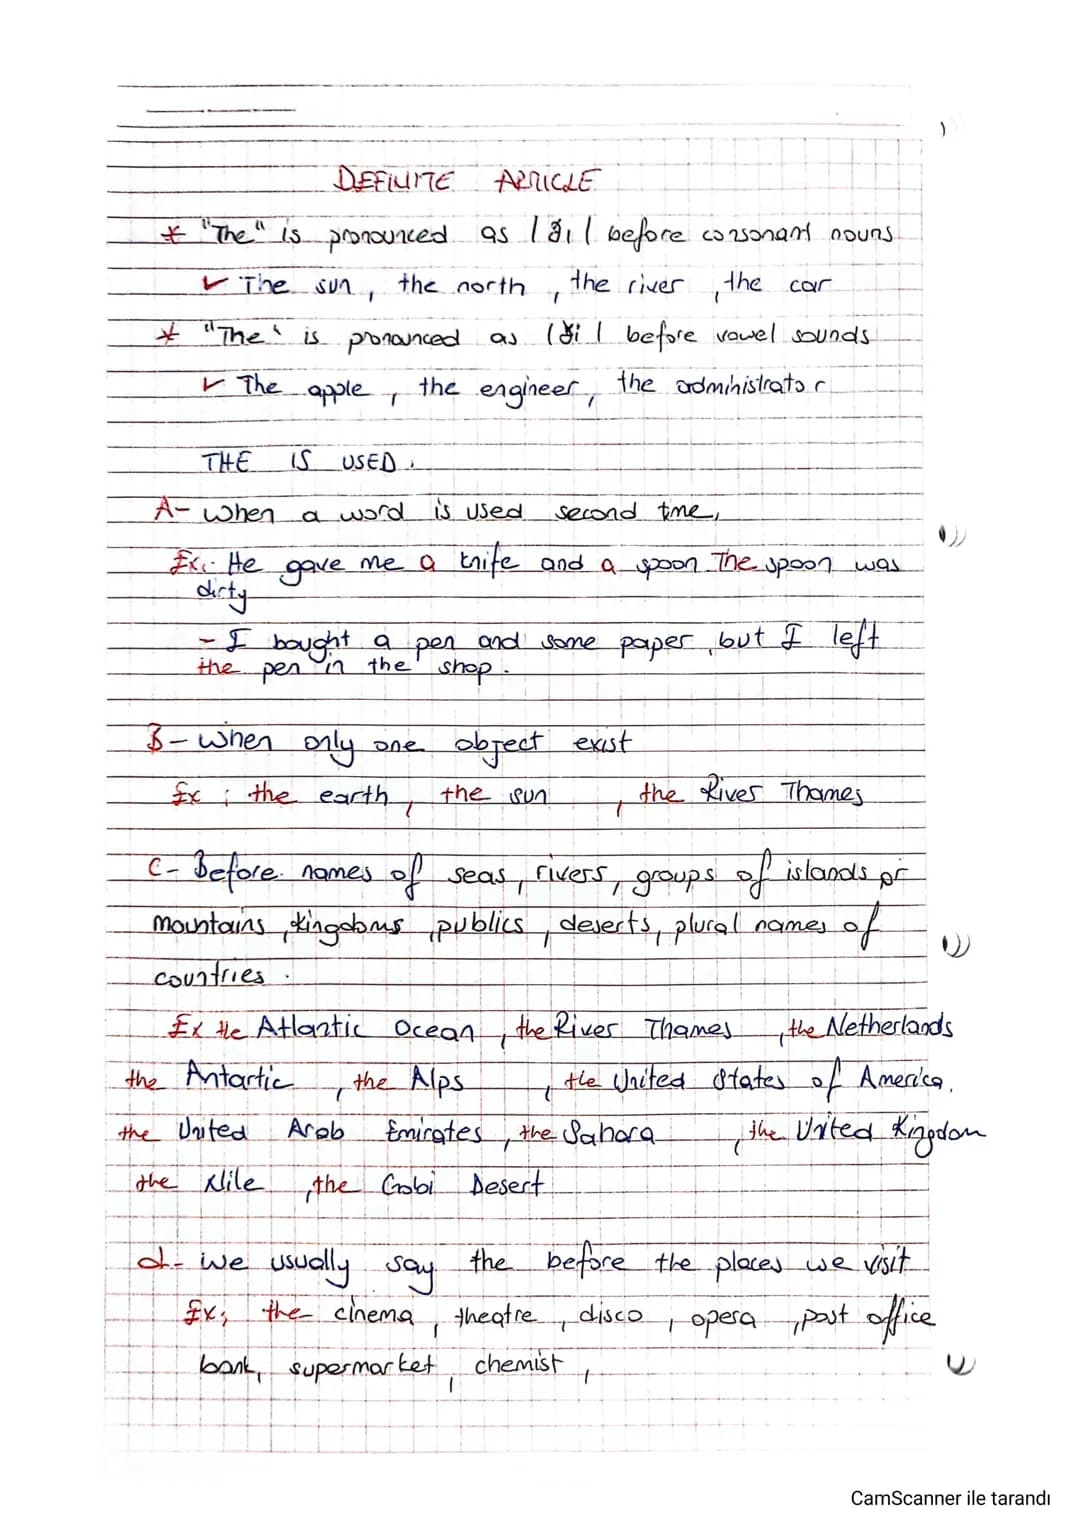 DEFINITE ARTICLE
* "The" is pronounced as |ðı| before consonant nouns
✓ The sun, the north, the river, the car
* "The" is pronounced as |ði| before vowel sounds
✓ The apple, the engineer, the administrator
THE IS USED.
A- When a word is used second time,
Ex: He gave me a knife and a spoon. The spoon was
dirty
- I bought a pen and some paper, but I left
the pen in the shop.
B- When only one object exist
Ex; the earth, the sun, the River Thames
C- Before names of seas, rivers, groups of islands or
mountains, kingdoms, publics, deserts, plural names of
countries.
Ex the Atlantic Ocean, the River Thames, the Netherlands
the Antartic, the Alps, the United States of America,
the United Arab Emirates, the Sahara, the United Kingdom
the Nile, the Gobi Desert
d- We usually say the before the places we visit
Ex; the cinema, theatre, disco, opera, post office
bank, supermarket, chemist,
CamScanner ile tarandı